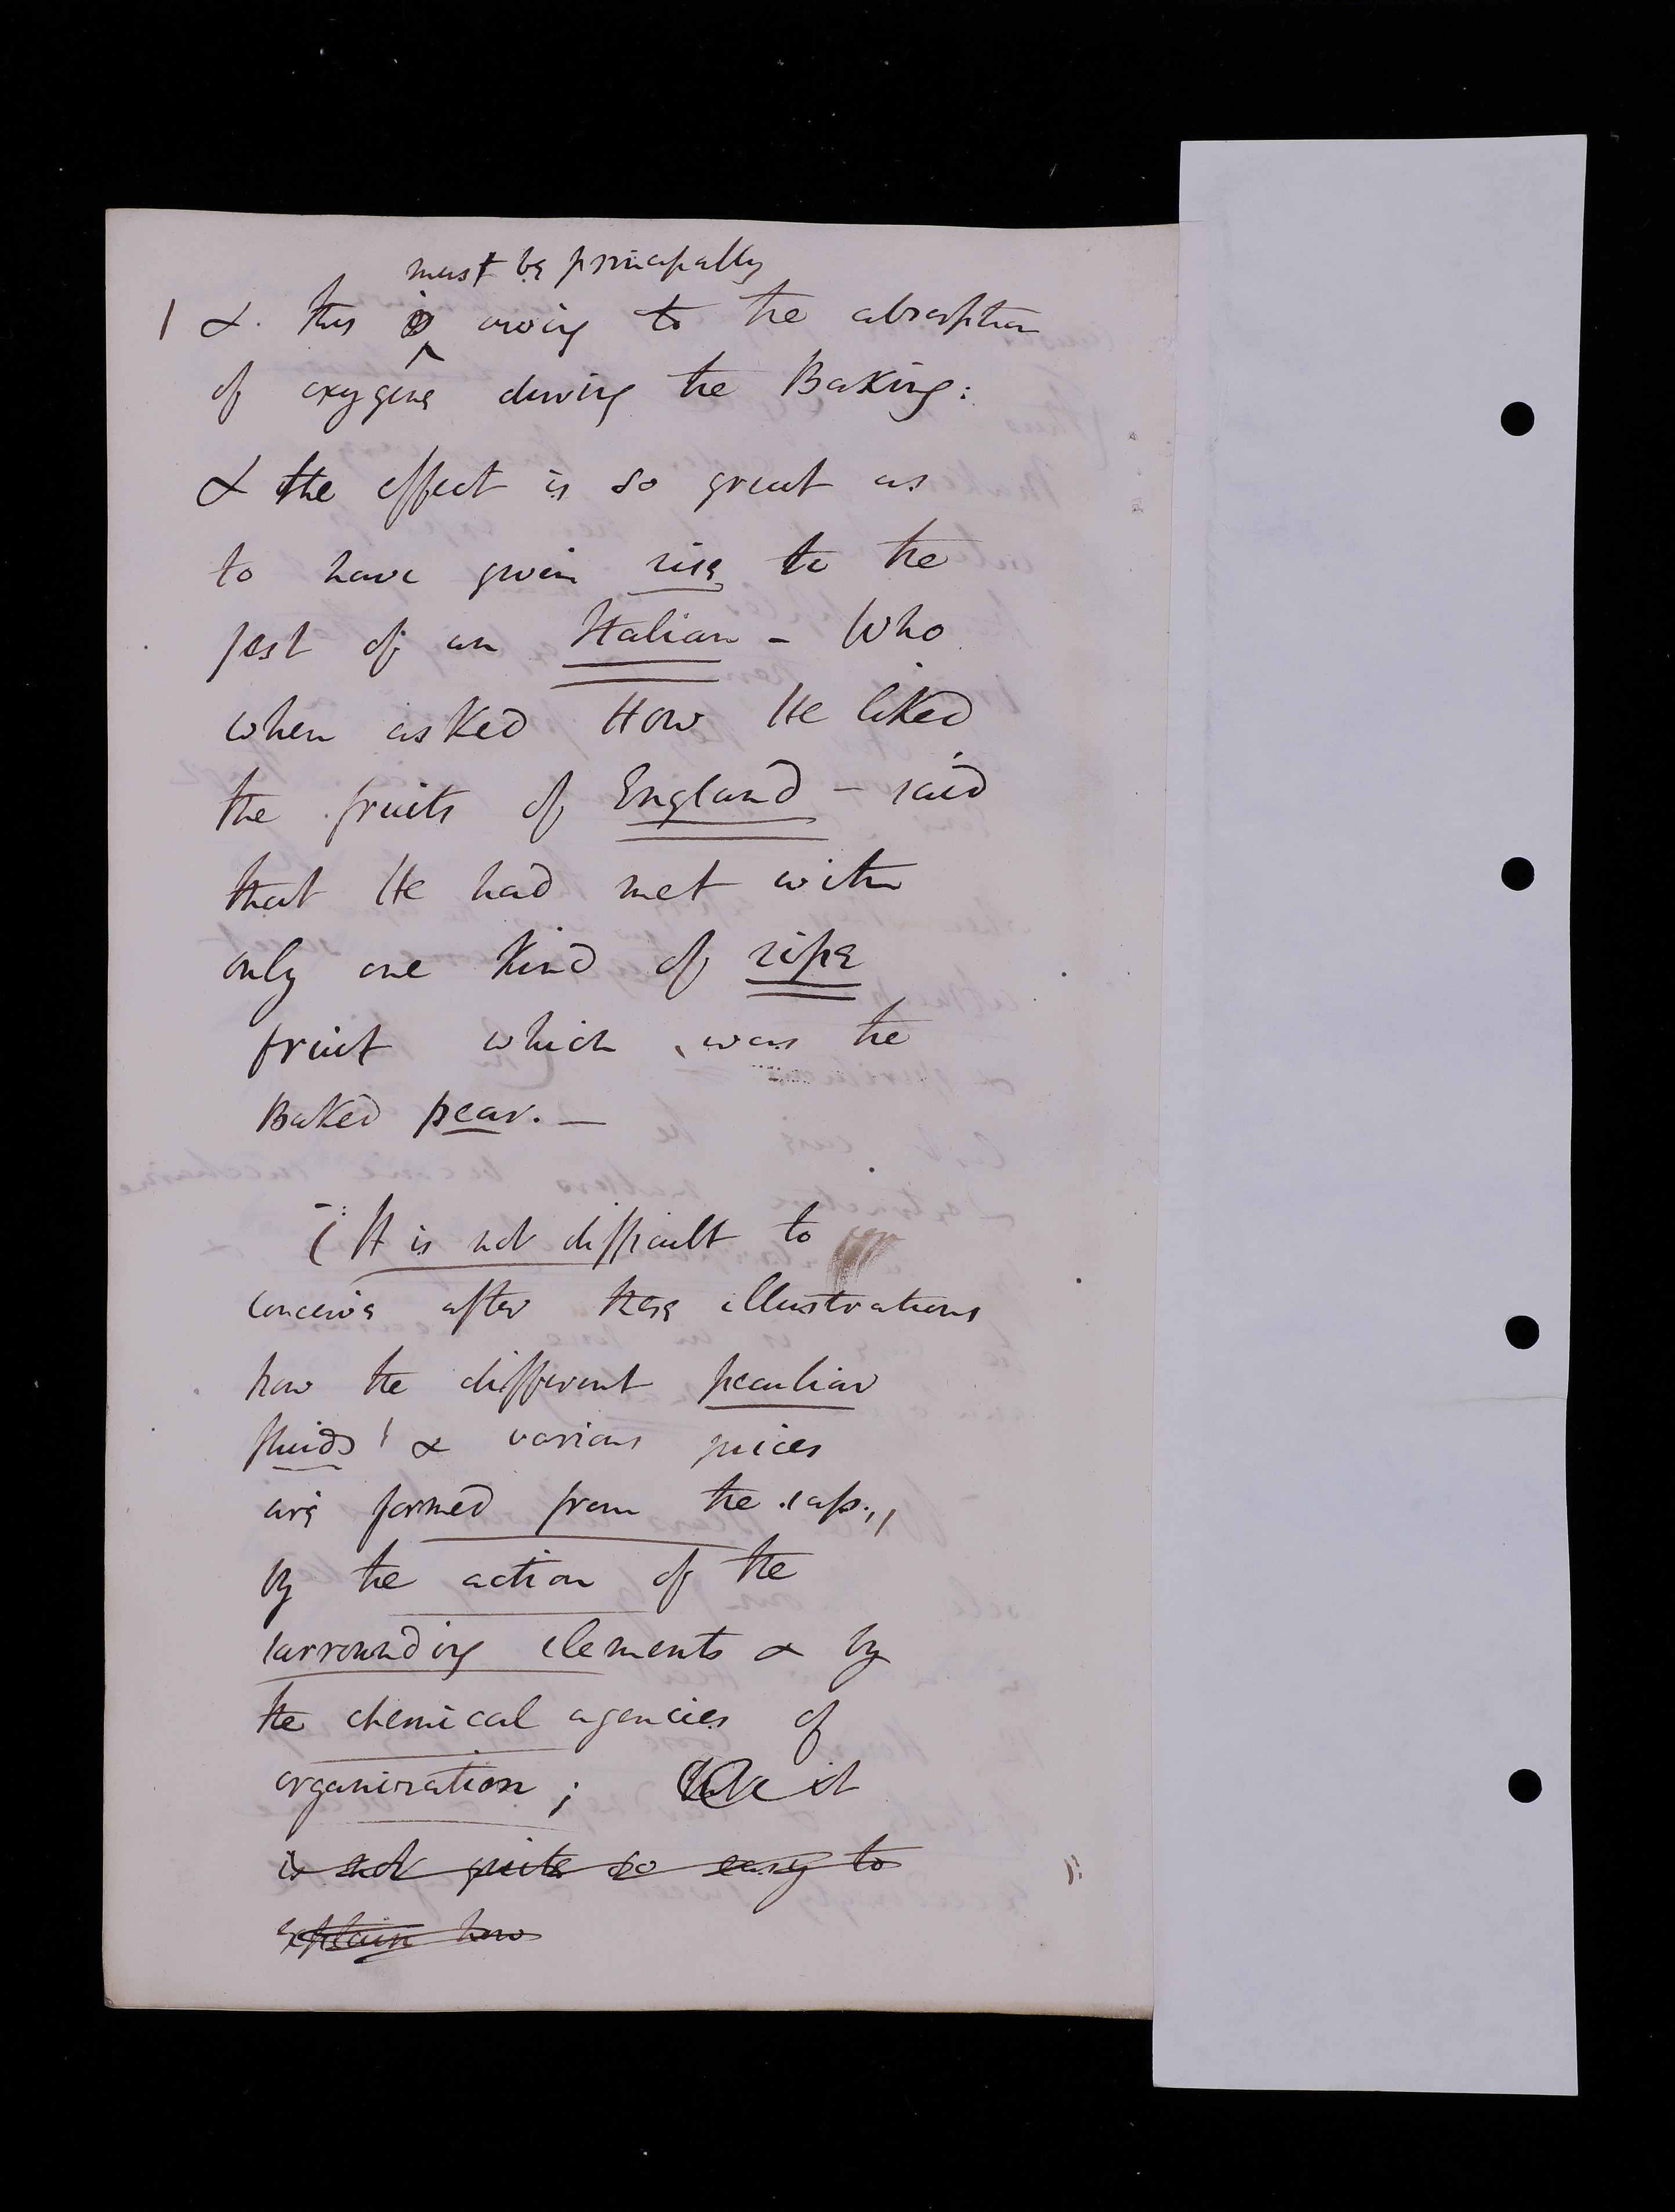 must be principally
& this is owing to the absorption
of oxygene during the Baking:
& the effect is so great as
to have given rise to the
jest of an Italian - Who
when asked How He liked
the fruits of England - said
that He had met with
only one kind of ripe
fruit which was the
Baked pear. -
(It is not difficult to
conceive after these illustrations
how the different peculiar
fluids & various juices
are formed from the sap,
by the action of the
surrounding elements & by
the chemical agencies of
organization; it
is not quite so easy to
explain how